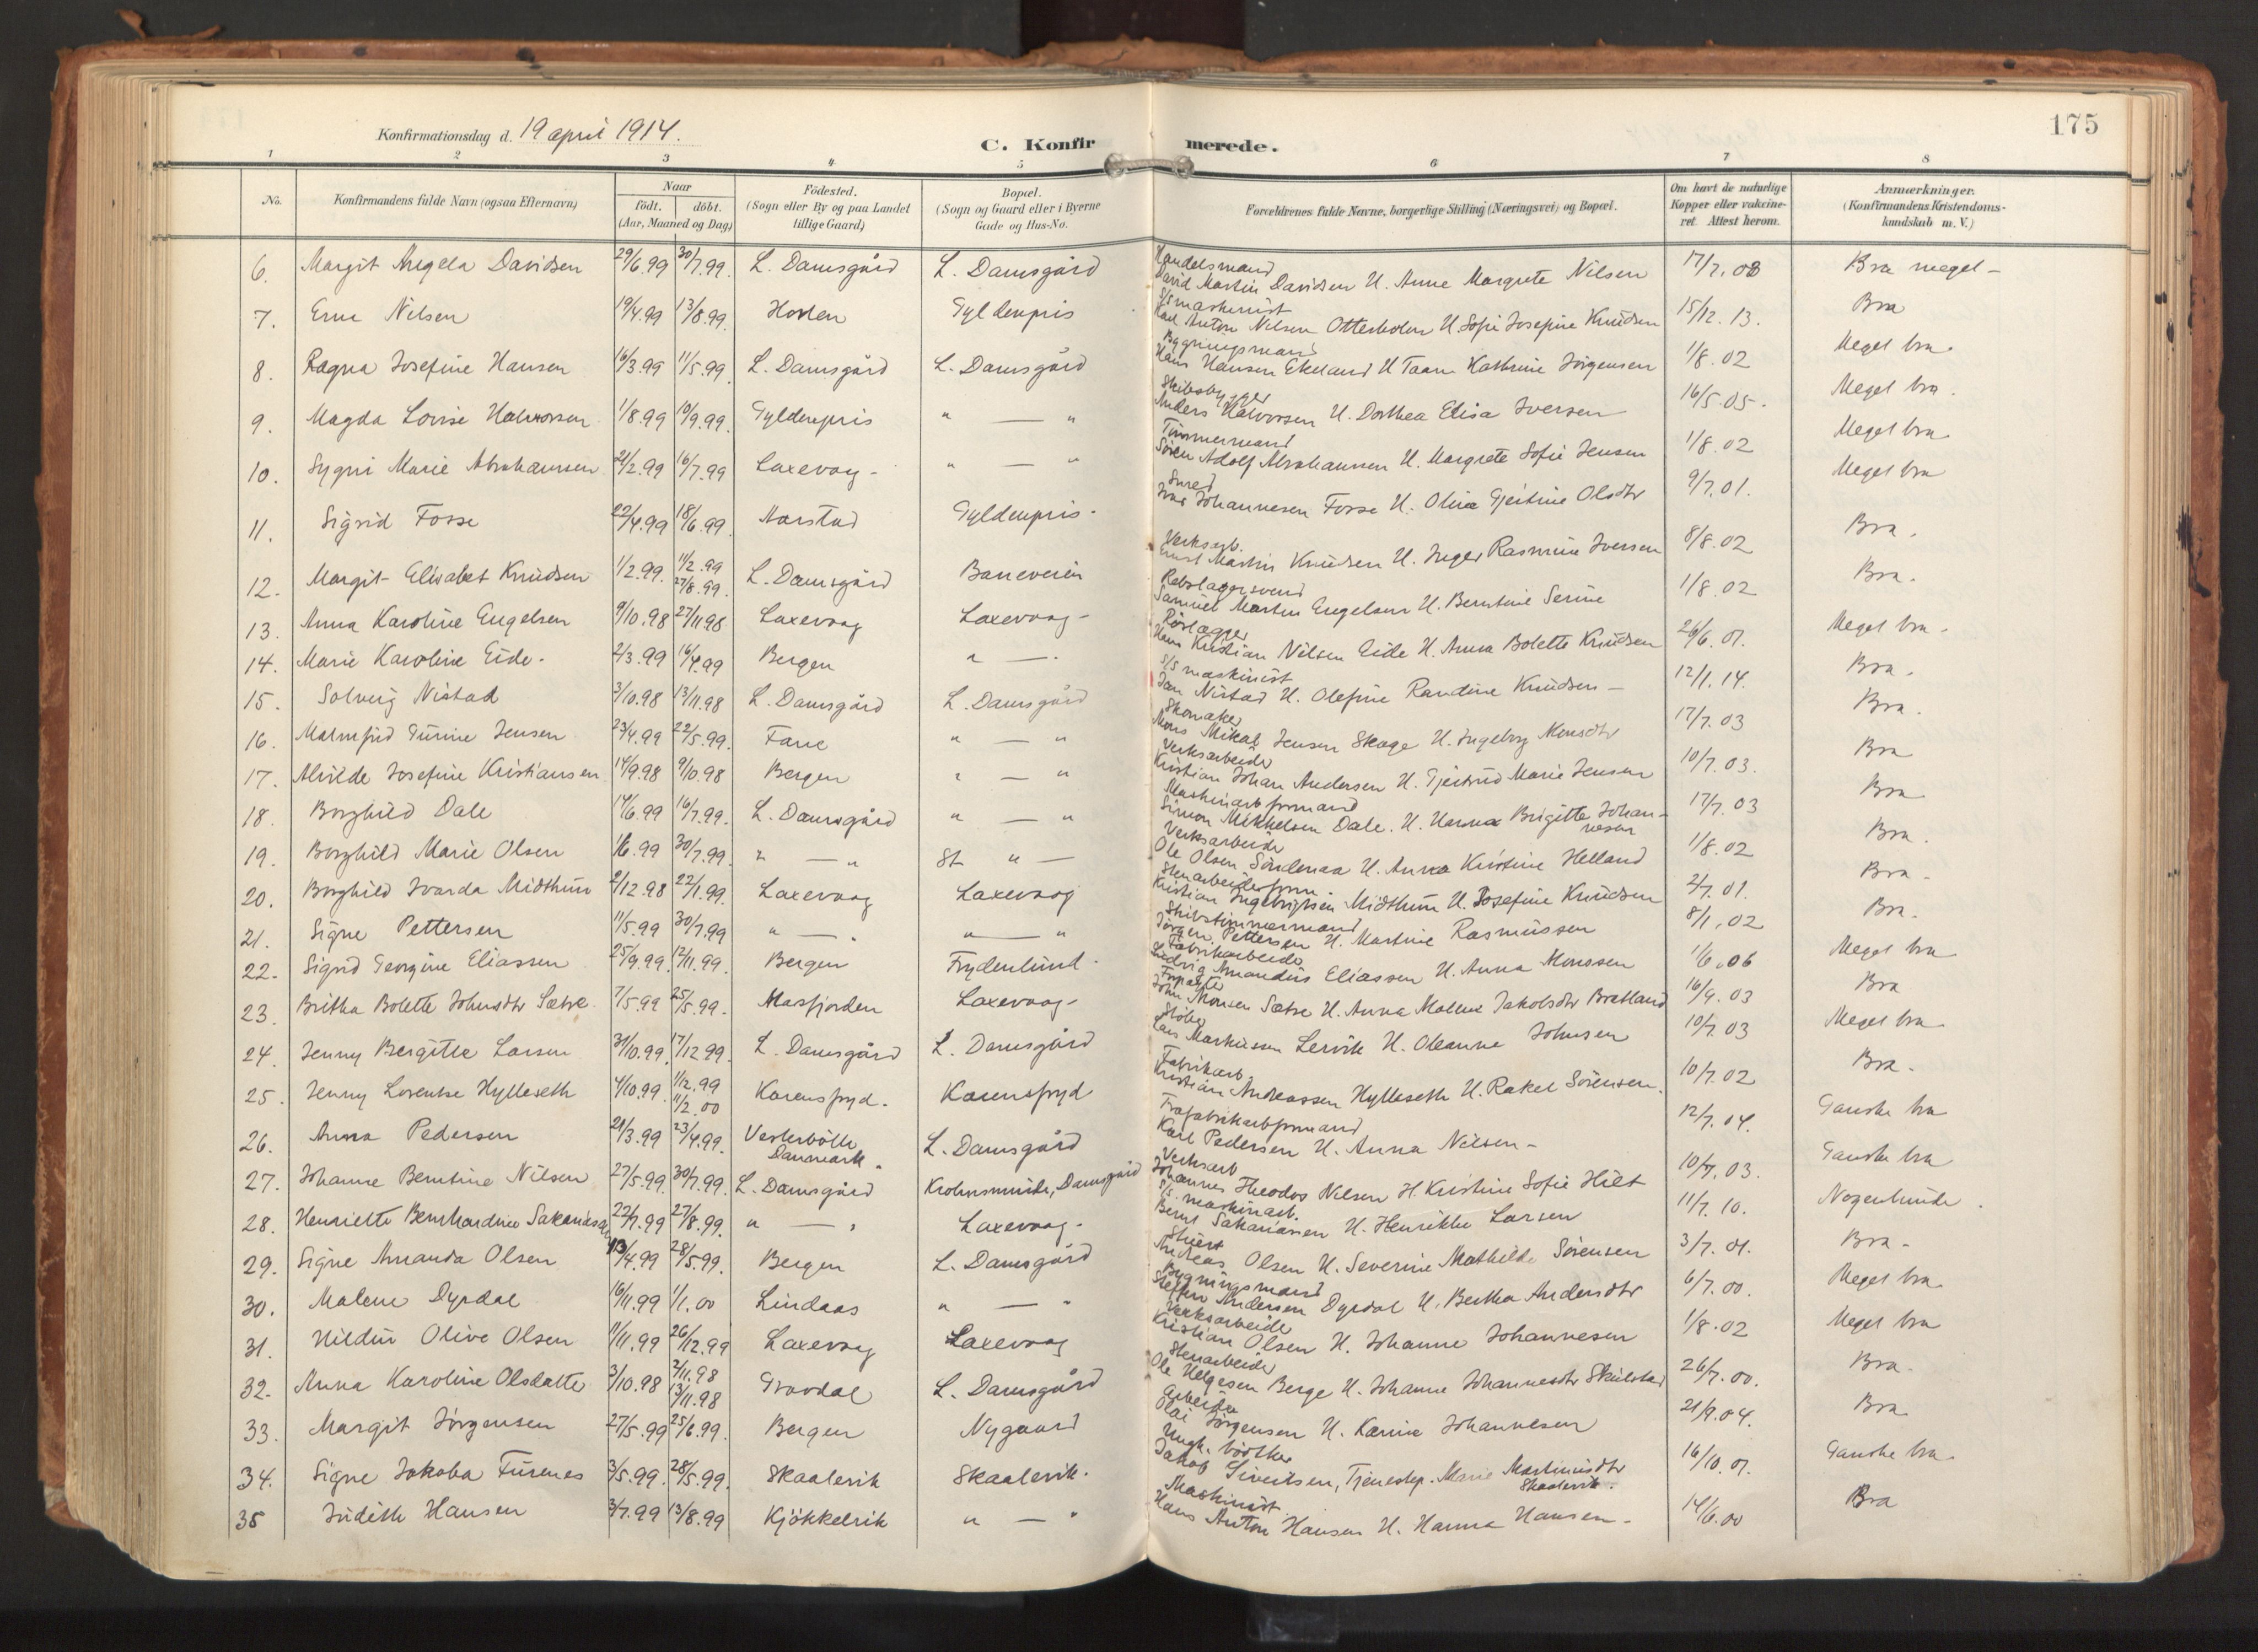 175
Konfirmationsdag d. 19 april 1914.
C. Konfirmerede.
1 2 3 4 5 6 7 8
No. Konfirmandens fulde Navn (ogsaa Efternavn) Naar födt. döbt. (Aar, Maaned og Dag) Födested. (Sogn eller By og paa Landet tillige Gaard) Bopæl. (Sogn og Gaard eller i Byerne Gade og Hus-No. Forældrenes fulde Navne, borgerlige Stilling (Næringsvei) og Bopæl. Om havt de naturlige Kopper eller vakcineret. Attest herom. Anmærkninger. (Konfirmandens Kristendomskundskab m. V.)
Handelsmand
6. Margit Angela Davidsen 29/6.99 30/7.99. L. Damsgård L. Damsgård David Martin Davidsen H. Anne Margrete Nilsen 17/7.08 Bra meget -
S/S maskinist
7. Erna Nilsen 19/4.99 13/8.99. Horten Gyldenpris Karl Anton Nilsen Otterholm H. Sofie Josefine Knudsen 15/12.13. Bra
Bygningsmand
8. Ragna Josefine Hansen 16/3.99 11/5.99. L. Damsgård L. Damsgård Hans Hansen Ekeland H Kathrine Jörgensen 1/8.02 Meget bra
Skibsbygger
9. Magda Lovise Halvorsen 1/8.99 10/9.99. Gyldenpris " — " Anders Halvorsen H. Dorthea Elisa Iversen 16/5.05. Meget bra.
Tömmermand
10. Sygni Marie Abrahamsen 21/2.99 16/7.99 Laxevaag - " — " Sören Adolf Abrahamsen H. Margrete Sofie Jensen 1/8.02 Meget bra
Smed
11. Sigrid Fosse 22/4.99 18/6.99. Aarstad Gyldenpris. Ivar Johannesen Fosse H. Olina Gjertine Olsdtr 9/7.01. Meget bra
Verksarb.
12. Margit Elisabet Knudsen 1/2.99. 11/2.99 27/8.99. L. Damsgård Baneveien Ernst Martin Knudsen H. Inger Rasmine Iversen 8/8.02 Bra.
Rebslagersvend
13. Anna Karoline Engelsen 9/10.98 27/11.98 Laxevaag Laxevaag - Samuel Martin Engelsen H. Berntine Serine 1/8.02 Bra.
Rörlegger
14. Marie Karoline Eide. 2/3.99 16/4.99 Bergen " — . Hans Kristian Nilsen Eide H. Anna Bolette Knudsen 26/6.01. Meget bra.
S/S maskinist
15. Solveig Nistad 3/10.98 13/11.98 L. Damsgård L. Damsgård Jan Nistad H. Olefine Randine Knudsen - 12/1.14. Bra.
Skomaker
16. Malmfrid Turine Jensen 23/4.99 22/5.99. Fane " — " Mons Mikal Jensen Skage H. Ingeborg Monsdtr 17/7.03 Bra.
Verksarbeider
17. Alvilde Josefine Kristiansen 14/9.98 9/10.98 Bergen " — " Kristian Johan Andersen H. Gjertrud Marie Jensen 10/7.03. Bra
Maskinarb formand
18. Borghild Dale 14/6.99 16/7.99. L. Damsgård " — " Simon Mikkelsen Dale. H. Hanna Brigitte Johannesen 17/7.03 Bra
Verksarbeider
19. Borghild Marie Olsen 1/6.99 30/7.99. " — " St " — Ole Olsen Söndenaa H. Anna Kristine Helland 1/8.02 Bra.
Stenarbeiderform.
20. Borghild Ivarda Midthun 2/12.98 22/1.99. Laxevaag Laxevaag Kristian Ingebrigtsen Midthun H. Josefine Knudsen 2/7.01. Bra.
Skibstimmermand
21. Signe Pettersen 11/5.99 30/7.99 " — " " — " Jörgen Pettersen H. Martine Rasmussen 8/1.02 Bra.
Fabrikarbeider
22. Sigrid Georgine Eliassen 25/9.99. 12/11.99. Bergen Frydenlund. Ludvig Amandus Eliassen H. Anna Monssen 1/6.06 Meget bra
23. Britha Bolette Johnsdtr Sætre 7/5.99 25/5.99. Masfjorden Laxevaag - John Monsen Sætre H. Anna Malene Jakobsdtr Bratland 16/9.03 Bra
Stöber
24. Jenny Bergitte Larsen 31/10.99. 17/12.99. L. Damsgård L. Damsgård Lars Markussen Lervik H. Oleanne Johnsen 10/7.03 Meget bra
Fabrikarb.
25. Jenny Lorentse Hylleseth 4/10.99. 1/12.99 11/2.00 Karensfryd. Karensfryd Kristian Andreassen Hylleseth H. Rakel Sörensen. 10/7.02 Bra.
26. Anna Pedersen 21/3.99 23/4.99. Vesterbölle Danmark. L. Damsgård Karl Pedersen H. Anna Nilsen - 12/7.04. Ganske bra
Verksarb
27. Johanne Berntine Nilsen 27/5.99. 30/7.99. L. Damsgård Krohnsminde, Damsgård Johannes Theodor Nilsen H. Kristine Sofie Hilt 10/7.03. Ganske bra
S/S. maskinarb.
28. Henriette Bernhardine Sakariassen 22/7.99 27/8.99. " — " Laxevaag. Bernt Sakariassen H. Henrikke Larsen 11/7.10. Nogenlunde.
29. Signe Amanda Olsen 13/4.99 28/5.99. Bergen L. Damsgård Andreas Olsen H. Severine Mathilde Sörensen 3/7.01. Bra -
Bygningsmand
30. Malene Dyrdal 16/11.99 1/1.00 Lindaas " — " Steffen Andersen Dyrdal H. Bertha Andersdtr 6/7.00. Meget bra
Verksarbeider
31. Hildur Olive Olsen 11/11.99 26/12.99 Laxevaag Laxevaag Kristian Olsen H. Johanne Johannesen 1/8.02 Meget bra
Stenarbeider
32. Anna Karoline Olsdatter 3/10.98 2/11.98 13/11.98 Gravdal L. Damsgård Ole Helgesen Berge H. Johanne Johannesdtr Skulstad 26/7.00. Bra.
Arbeider
33. Margit Jörgensen 27/5.99 25/6.99. Bergen Nygaard Olai Jörgensen H. Karine Johannesen 21/9.04. Bra
Ungk. bödtker
34. Signe Jakoba Furenes 3/5.99. 28/5.99. Skaalevik Skaalevik. Jakob Sivertsen, Tjenestep. Marie Martinusdtr Skaalevik. 16/10.01. Ganske bra
Maskinist
35 Judith Hansen 3/7.99 13/8.99 Kjökkelvik " — " Hans Anton Hansen H. Hanna Hansen - 14/6.00 Bra